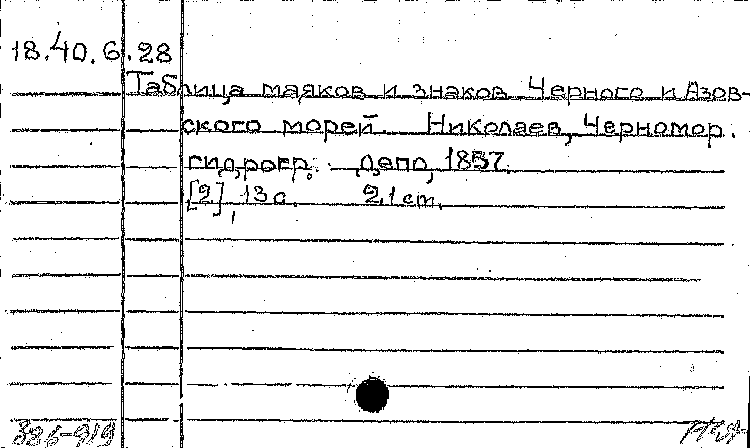 18.40.6.28
Таблица маяков и знаков Черного и Азов-
ского морей. Николаев, Черномор.
гидрогр. депо, 1857.
[2], 13 с. 21 cm.
386-919